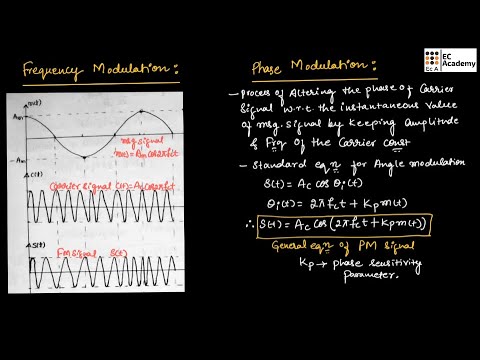 Frequency Modulation :
m(t)
Am
-Am
msg signal
m(t) = Am cos2πfmt
c(t)
Carrier signal c(t) = Ac cos2πfct
s(t)
FM signal s(t)
Phase Modulation :
EC
Academy
EC A
- Process of Altering the phase of Carrier
signal w.r.t. the instantaneous value
of msg. signal by keeping Amplitude
& Freq of the Carrier const
- Standard eqn for Angle modulation
S(t) = Ac cos θi(t)
θi(t) = 2πfct + Kpm(t)
∴ S(t) = Ac Cos (2πfct + Kpm(t))
General eqn of PM signal
Kp → phase sensitivity
parameter.